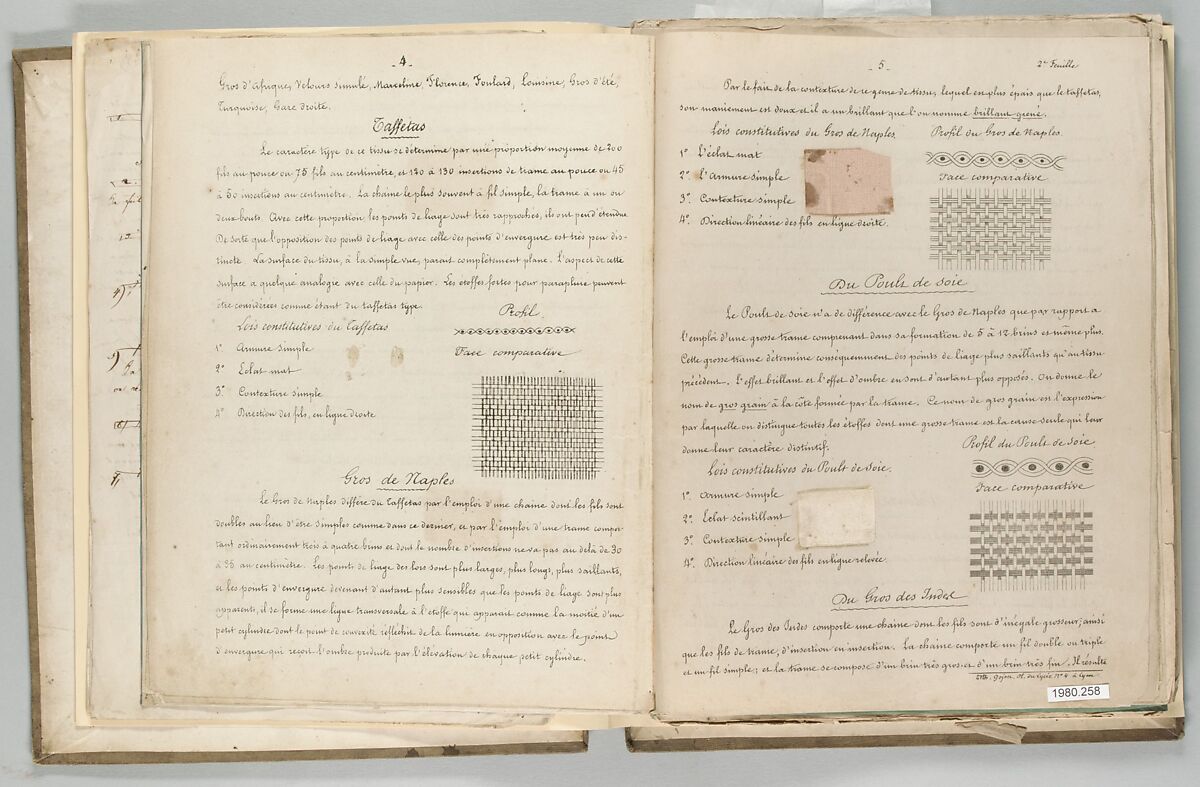 - 4 -
Gros d'Afrique, Velours simulé, Marceline, Florence, Foulard, Louisine, Gros d'Eté,
Turquoise, Gare droite.
Taffetas
Le caractère type de ce tissu se détermine par une proportion moyenne de 200
fils au pouce ou 75 fils au centimètre, et 120 à 130 insertions de trame au pouce ou 45
à 50 insertions au centimètre. La chaine le plus souvent à fil simple, la trame à un ou
deux bouts. Avec cette proportion les points de liage sont très rapprochés, ils ont peu d'étendue
De sorte que l'opposition des points de liage avec celle des points d'envergure est très peu dis-
tincte. La surface du tissu, à la simple vue, parait complètement plane. L'aspect de cette
surface a quelque analogie avec celle du papier. Les étoffes fortes pour parapluie peuvent
être considérées comme étant du taffetas type.
Lois constitutives du Taffetas
1° Armure simple
2° Eclat mat
3° Contexture simple
4° Direction des fils, en ligne droite
Profil.
Face comparative
Gros de Naples
Le Gros de Naples diffère du Taffetas par l'emploi d'une chaine dont les fils sont
doubles au lieu d'être simples comme dans ce dernier, et par l'emploi d'une trame compor-
tant ordinairement trois à quatre brins et dont le nombre d'insertions ne va pas au delà de 30
à 35 au centimètre. Les points de liage dès lors sont plus larges, plus longs, plus saillants,
et les points d'envergure devenant d'autant plus sensibles que les points de liage sont plus
apparents, il se forme une ligne transversale à l'étoffe qui apparait comme la moitié d'un
petit cylindre dont le point de convexité réfléchit de la lumière en opposition avec le point
d'envergure qui reçoit l'ombre produite par l'élévation de chaque petit cylindre.
- 5 -
2me Feuille
Par le fait de la contexture de ce genre de tissu, lequel est plus épais que le taffetas,
son maniement est doux et il a un brillant que l'on nomme brillant grené.
Lois constitutives du Gros de Naples
1° L'éclat mat
2° L'Armure simple
3° Contexture simple
4° Direction linéaire des fils en ligne droite.
Profil du Gros de Naples.
Face comparative
Du Poult de Soie
Le Poult de soie n'a de différence avec le Gros de Naples que par rapport à
l'emploi d'une grosse trame comprenant dans sa formation de 5 à 12 brins et même plus.
Cette grosse trame détermine conséquemment des points de liage plus saillants qu'au tissu
précédent. L'effet brillant et l'effet d'ombre en sont d'autant plus opposés. On donne le
nom de gros grain à la côte formée par la trame. Ce nom de gros grain est l'expression
par laquelle on distingue toutes les étoffes dont une grosse trame est la cause seule qui leur
donne leur caractère distinctif.
Lois constitutives du Poult de Soie.
1° Armure simple
2° Eclat scintillant
3° Contexture simple
4° Direction linéaire des fils en ligne relevée.
Profil du Poult de Soie
Face comparative
Du Gros des Indes
Le Gros des Indes comporte une chaine dont les fils sont d'inégale grosseur; ainsi
que les fils de trame, d'insertion en insertion. La chaine comporte un fil double ou triple
et un fil simple; et la trame se compose d'un brin très gros et d'un brin très fin. Il résulte
1980.258